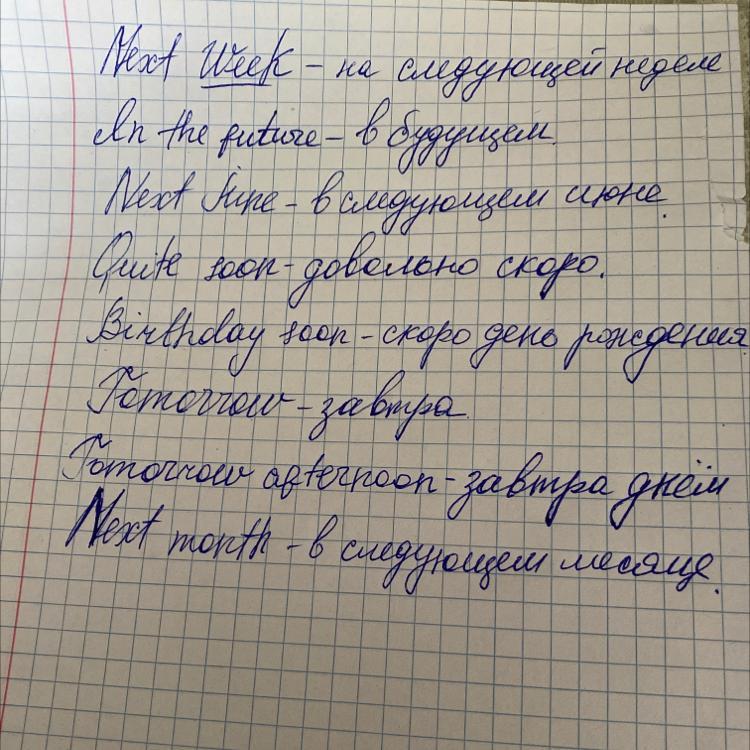 Next Week - на следующей неделе
In the future - в будущем.
Next June - в следующем июне.
Quite soon - довольно скоро.
Birthday soon - скоро день рождения
Tomorrow - завтра.
Tomorrow afternoon - завтра днём
Next month - в следующем месяце.